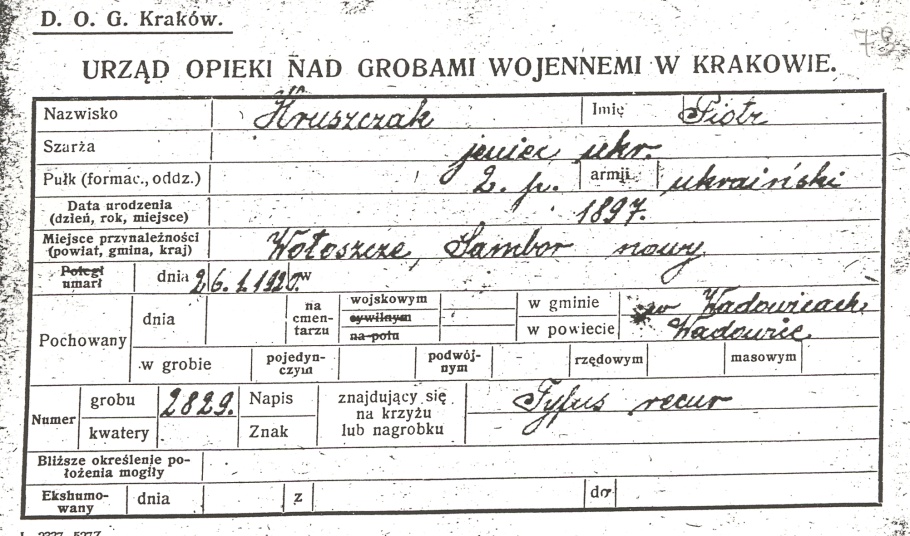 D. O. G. Kraków.
79
URZĄD OPIEKI NAD GROBAMI WOJENNEMI W KRAKOWIE.
Nazwisko Hruszczak Imię Piotr
Szarża jeniec ukr.
Pułk (formac., oddz.) 2. p. armji ukraiński
Data urodzenia
(dzień, rok, miejsce) 1897.
Miejsce przynależności
(powiat, gmina, kraj) Wołoszcze, Sambor nowy
Poległ
umarł dnia 26. 1. 1920. w
Pochowany dnia na cmen-tarzu wojskowym w gminie w Wadowicach
cywilnym
na polu w powiecie Wadowic
w grobie pojedyn-czym podwój-nym rzędowym masowym
Numer grobu 2829. Napis znajdujący się na krzyżu lub nagrobku Tyfus recur
kwatery Znak
Bliższe określenie po-
łożenia mogiły
Ekshumo-
wany dnia z do